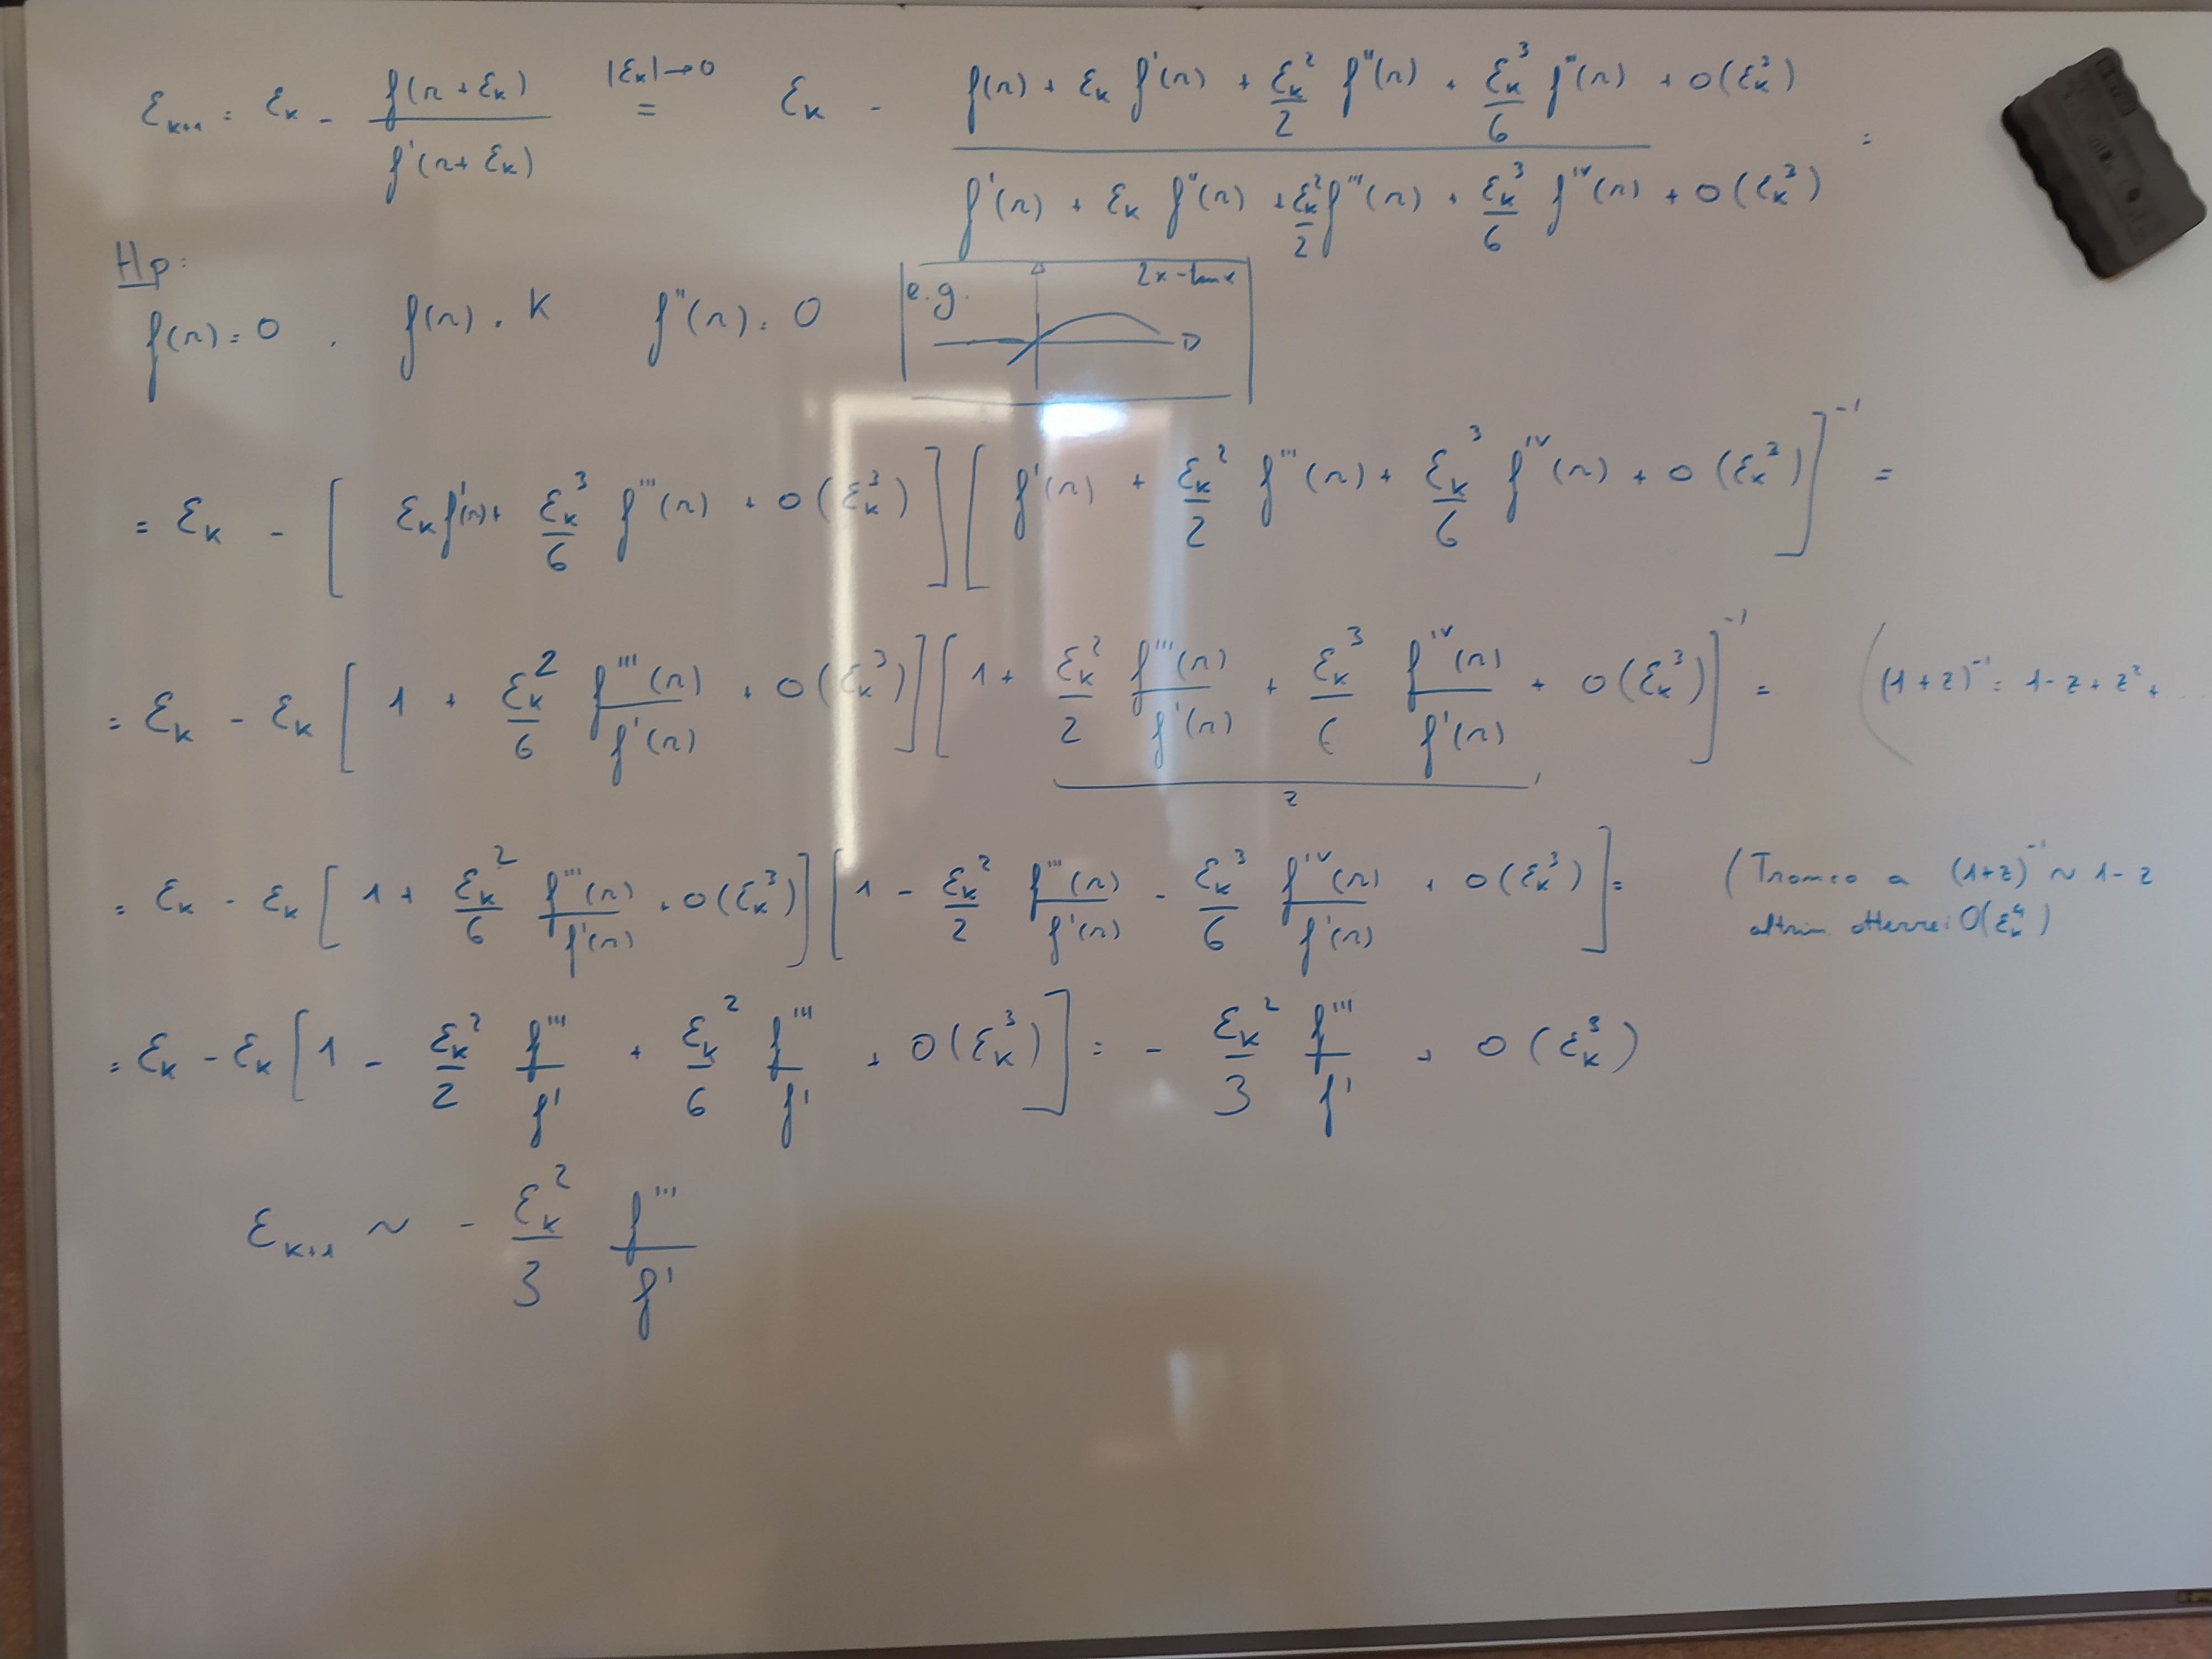 ε_{k+1} = ε_k - f(r + ε_k) / f'(r + ε_k) =^{|ε_k|→0} ε_k - [f(r) + ε_k f'(r) + ε_k^2/2 f''(r) + ε_k^3/6 f'''(r) + o(ε_k^3)] / [f'(r) + ε_k f''(r) + ε_k^2/2 f'''(r) + ε_k^3/6 f^{IV}(r) + o(ε_k^3)] =
Hp:
f(r) = 0 , f(r) = K f''(r) = 0
e.g. 2x - tan x
= ε_k - [ε_k f'(r) + ε_k^3/6 f'''(r) + o(ε_k^3)] [f'(r) + ε_k^2/2 f'''(r) + ε_k^3/6 f^{IV}(r) + o(ε_k^3)]^{-1} =
= ε_k - ε_k [1 + ε_k^2/6 f'''(r)/f'(r) + o(ε_k^3)] [1 + ε_k^2/2 f'''(r)/f'(r) + ε_k^3/6 f^{IV}(r)/f'(r) + o(ε_k^3)]^{-1} = ( (1+z)^{-1} = 1 - z + z^2 + ...
z
= ε_k - ε_k [1 + ε_k^2/6 f'''(r)/f'(r) + o(ε_k^3)] [1 - ε_k^2/2 f'''(r)/f'(r) - ε_k^3/6 f^{IV}(r)/f'(r) + o(ε_k^3)] = (Tronco a (1+z)^{-1} ~ 1 - z
altrim. otterrei O(ε_k^4) )
= ε_k - ε_k [1 - ε_k^2/2 f'''/f' + ε_k^2/6 f'''/f' + o(ε_k^3)] = - ε_k^2/3 f'''/f' + o(ε_k^3)
ε_{k+1} ~ - ε_k^2/3 f'''/f'